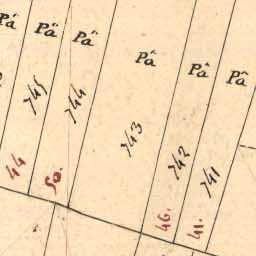 Pâ
Pä
Pä
Pâ
Pâ
Pâ
745
744
743
742
741
44
50.
46.
41.